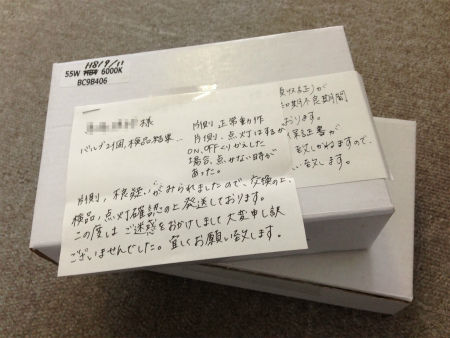 H8/9/11
55W HB4 6000K
BC9B406
様
バルブ2個、検品結果…
片側 正常動作
片側、点灯はするが
ON、OFFくりかえした
場合、点かない時が
あった。
片側、不良疑いがみられましたので、交換の上、
検品、点灯確認の上発送しております。
この度は ご迷惑をおかけしまして大変申し訳
ございませんでした。宜しくお願い致します。
証)が
期不良期間
おります。
証書が
致しかねますので、
い致します。